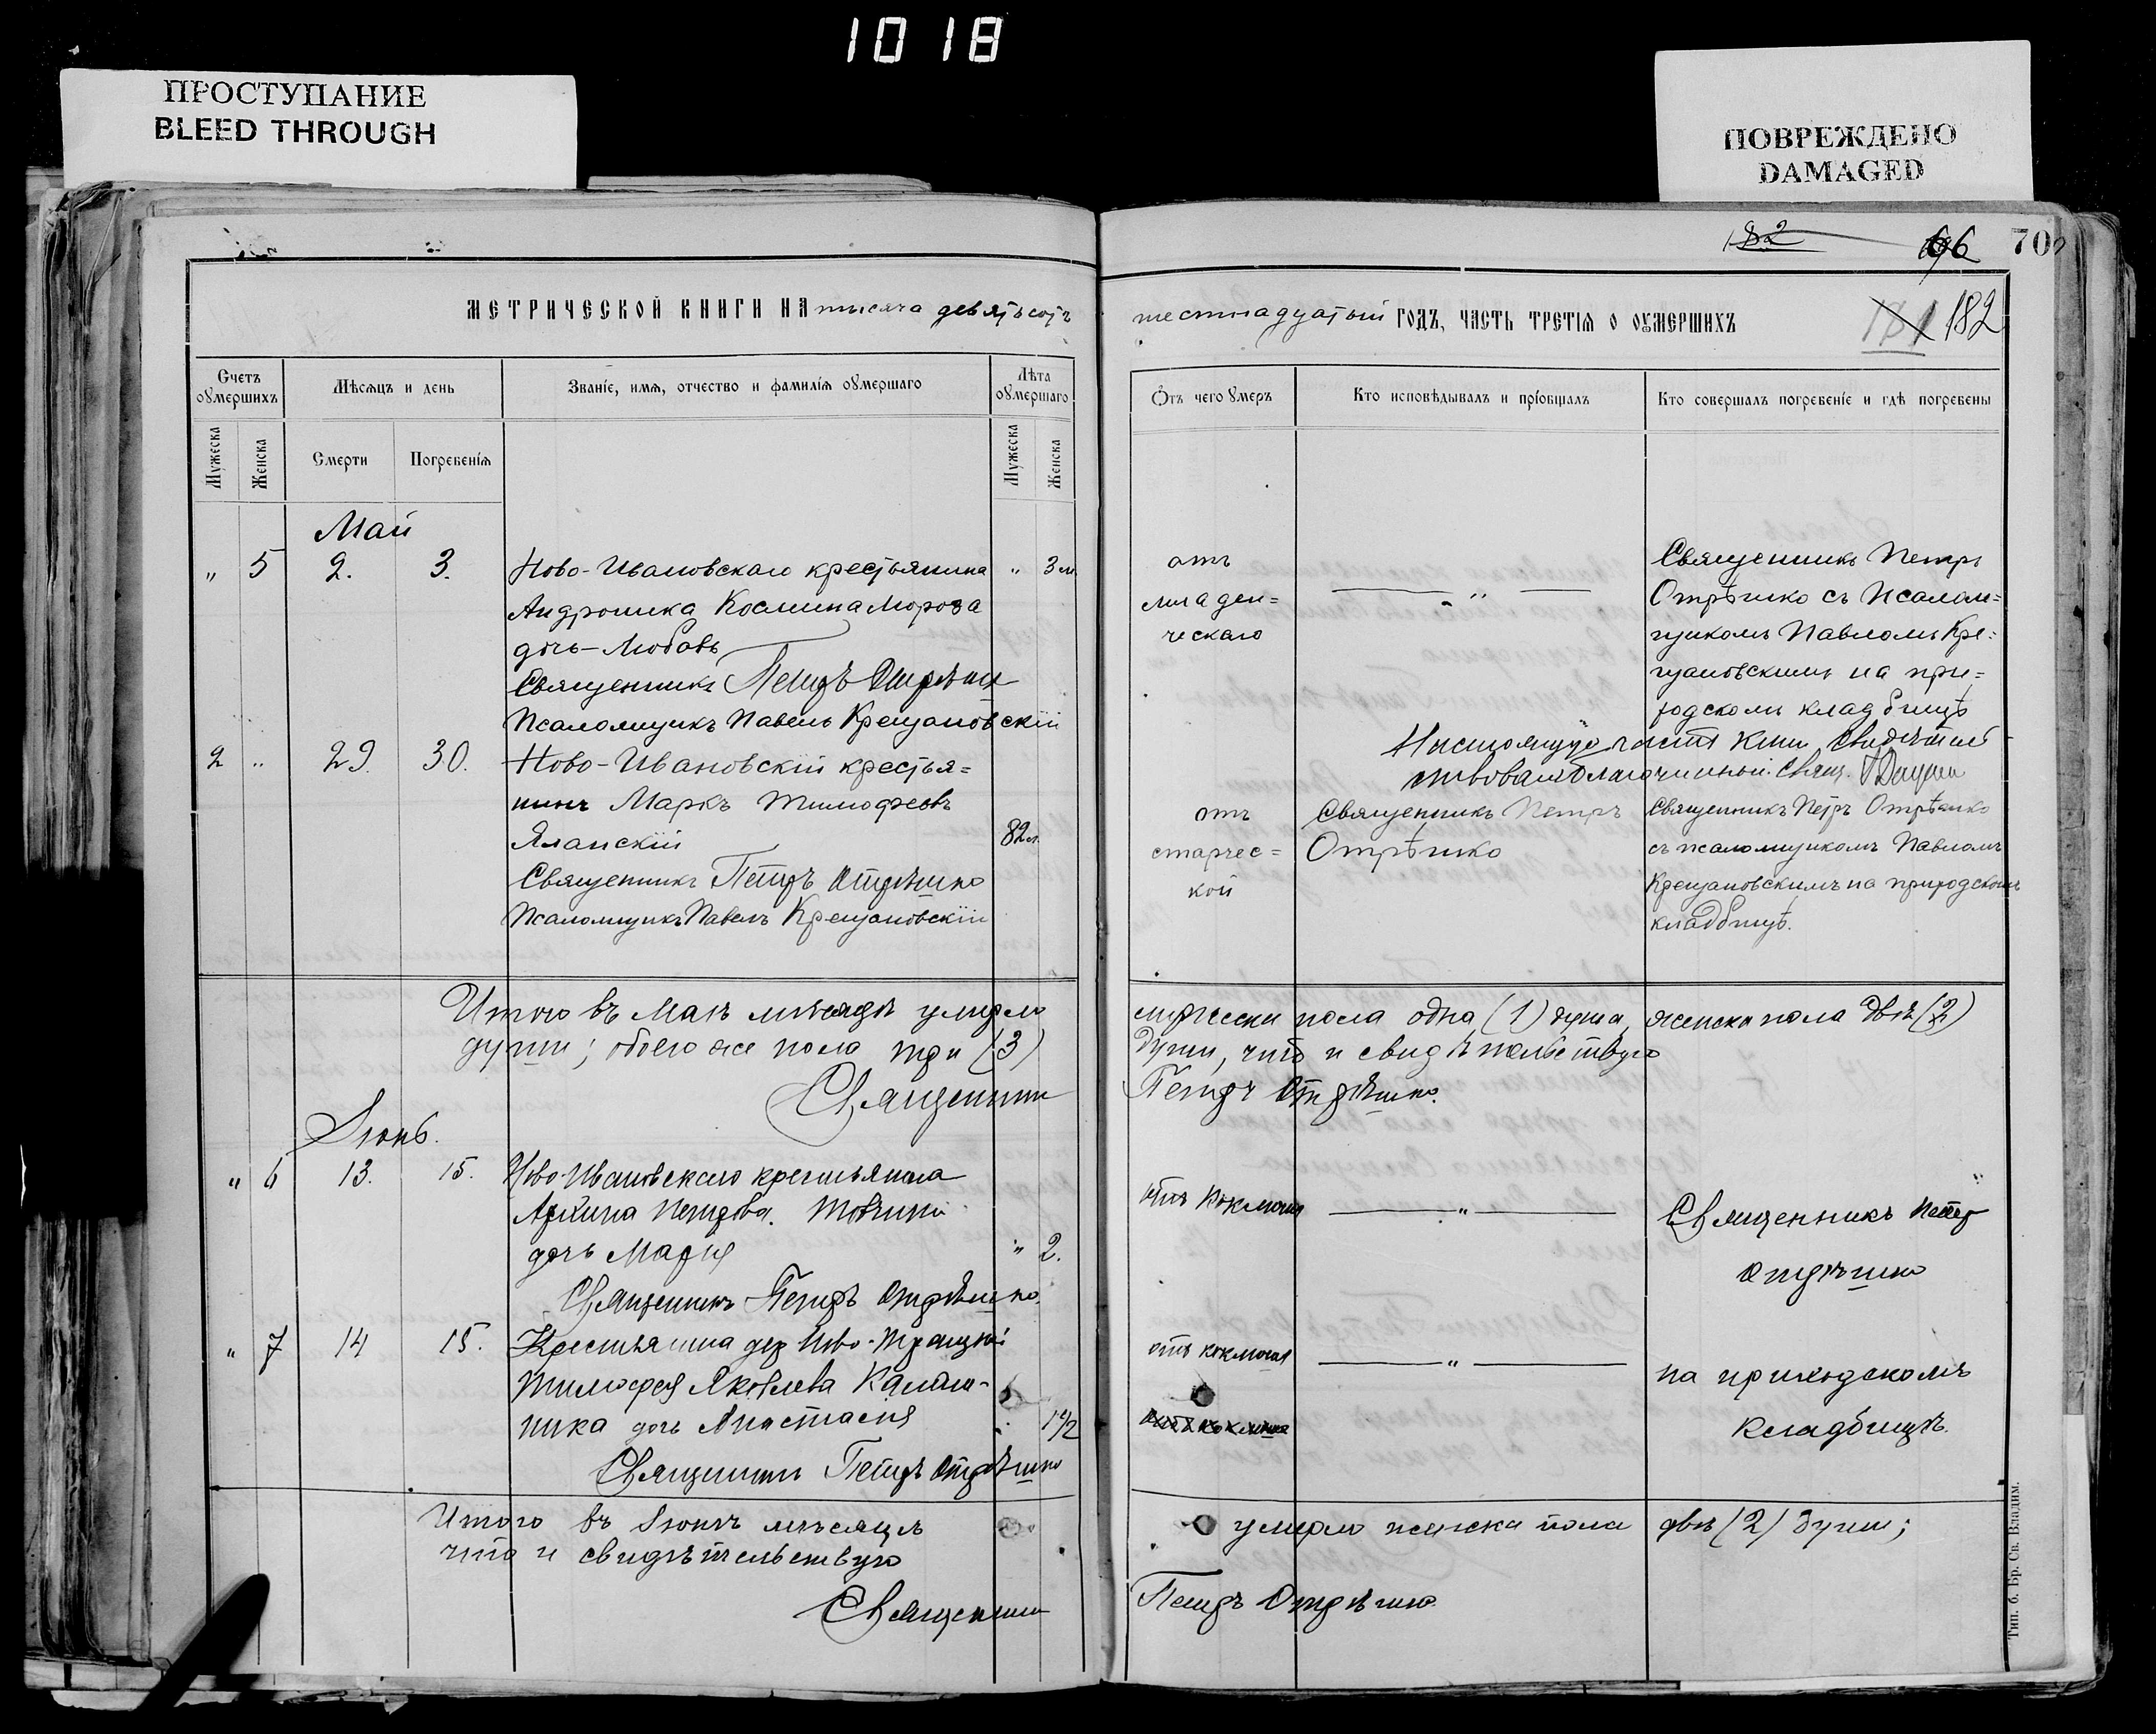 1018
ПРОСТУПАНИЕ
BLEED THROUGH
ПОВРЕЖДЕНО
DAMAGED
182
66
70
МЕТРИЧЕСКОЙ КНИГИ НА тысяча девятьсотъ
шестнадцатый ГОДЪ, ЧАСТЬ ТРЕТІЯ О ОУМЕРШИХЪ
181 182
Счетъ оумершихъ
Мѣсяцъ и день
Званіе, имя, отчество и фамилія оумершаго
Лѣта оумершаго
Мужеска
Женска
Смерти
Погребенія
Мужеска
Женска
Отъ чего умеръ
Кто исповѣдывалъ и пріобщалъ
Кто совершалъ погребеніе и гдѣ погребены
Май
" 5 2. 3. Ново-Ивановскаго крестьянина " 3 м.
Андроника Космина Мороза
дочь-Любовь
Священникъ Петръ Отрѣшко
Псаломщикъ Павелъ Крещановскій
отъ
младен=
ческаго
"
Священникъ Петръ
Отрѣшко съ псалом=
щикомъ Павломъ Кре=
щановскимъ на при=
ходскомъ кладбищѣ
Настоящую часть книги свидѣтель-
ствовалъ благочинный свящ.
2 " 29. 30. Ново-Ивановскій крестья=
нинъ Маркъ Тимофеевъ
Яланскій 82 л.
Священникъ Петръ Отрѣшко
Псаломщикъ Павелъ Крещановскій
отъ
старчес=
кой
Священникъ Петръ
Отрѣшко
Священникъ Петръ Отрѣшко
съ псаломщикомъ Павломъ
Крещановскимъ на приходскомъ
кладбищѣ.
Итого въ Маѣ мѣсяцѣ умерло
мужеска пола одна (1) душа, женска пола двѣ (2)
души; обоего же пола три (3)
души, что и свидѣтельствую
Священникъ
Петръ Отрѣшко.
Іюнь.
" 6 13. 15. Ново-Ивановскаго крестьянина
Архипа Петрова
дочь Марія " 2.
Священникъ Петръ Отрѣшко.
отъ коклюша
"
Священникъ Петръ
Отрѣшко
" 7 14 15. Крестьянина дер Ново-Троицкой
Тимофея Яковлева Калаш-
ника дочь Анастасія 1 1/2
Священникъ Петръ Отрѣшко
отъ коклюша
"
на приходскомъ
кладбищѣ.
Итого въ Іюнѣ мѣсяцѣ
умерло женска пола двѣ (2) души;
что и свидѣтельствую
Священникъ
Петръ Отрѣшко.
Тип. б. Бр. Св. Владим.